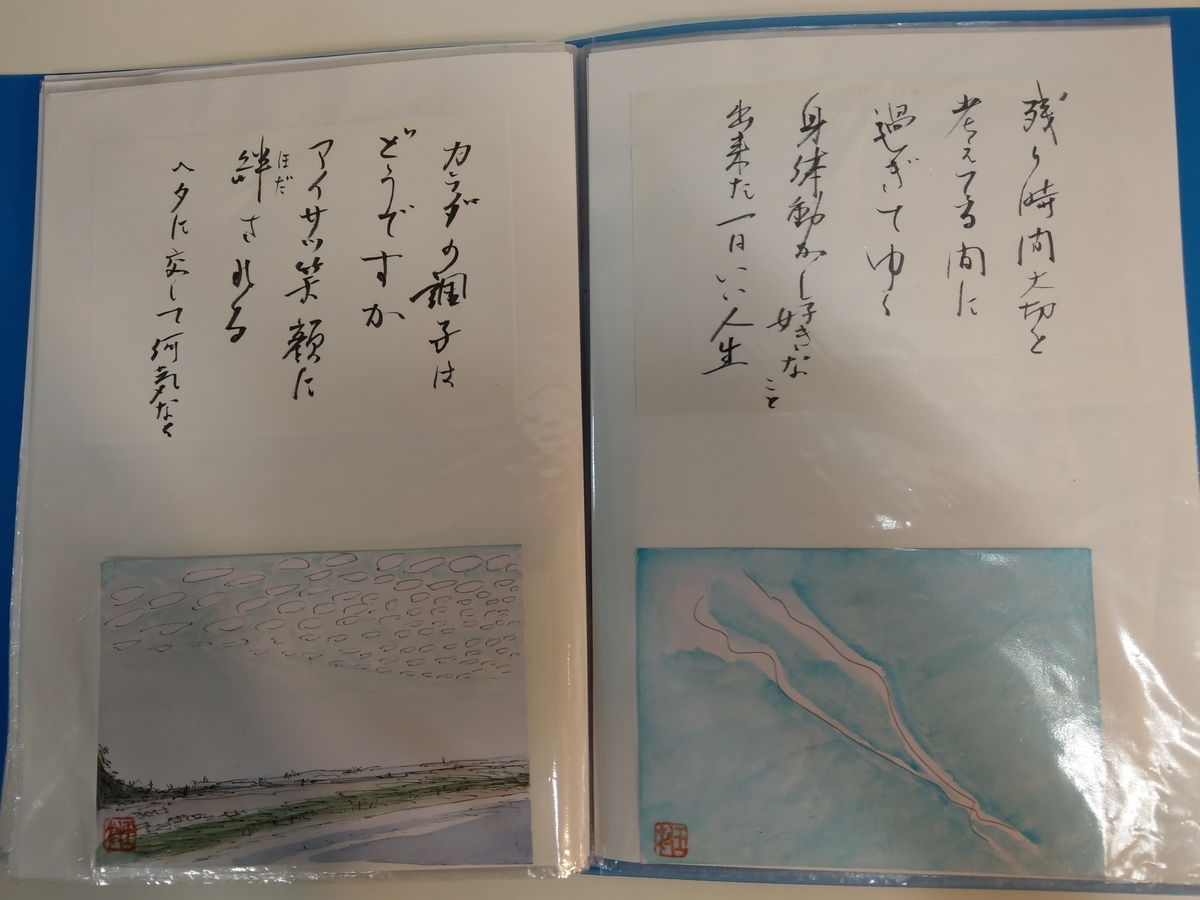 残り時間大切と
考えてる間に
過ぎてゆく
身体動かし好きな
こと
出来た一日いい人生
カラダの調子は
どうですか
アイサツ笑顔に
ほだ
絆される
ヘタに交して何気なく